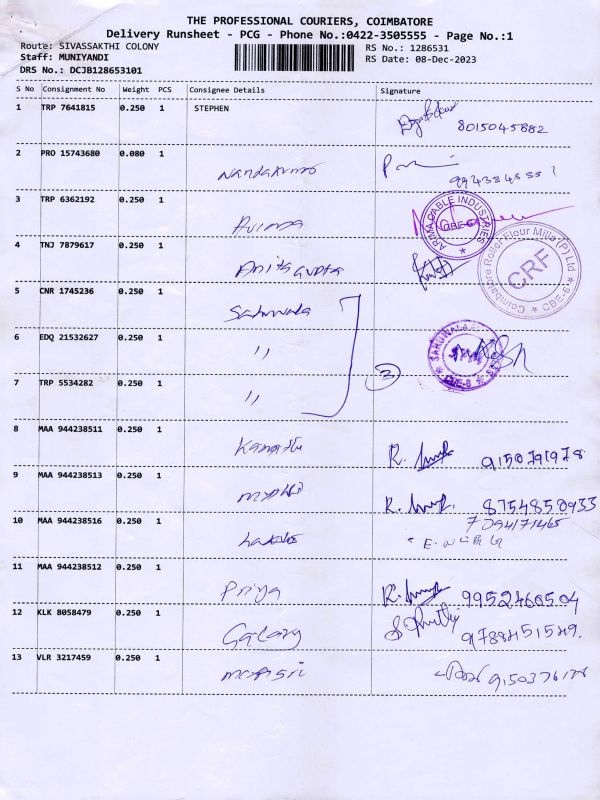 THE PROFESSIONAL COURIERS, COIMBATORE
Delivery Runsheet - PCG - Phone No.:0422-3505555 - Page No.:1
Route: SIVASSAKTHI COLONY RS No.: 1286531
Staff: MUNIYANDI RS Date: 08-Dec-2023
DRS No.: DCJB128653101
S No Consignment No Weight PCS Consignee Details Signature
1 TRP 7641815 0.250 1 STEPHEN
8015045882
2 PRO 15743680 0.080 1
3 TRP 6362192 0.250 1
ARMA CABLE INDUSTRIES
4 TNJ 7879617 0.250 1
Anita Gupta
Coimbatore Roller Flour Mills (P) Ltd
CRF
CBE-6
5 CNR 1745236 0.250 1
6 EDQ 21532627 0.250 1
"
7 TRP 5534282 0.250 1
"
2
8 MAA 944238511 0.250 1
9150791978
9 MAA 944238513 0.250 1
8754858933
10 MAA 944238516 0.250 1
7094171465
11 MAA 944238512 0.250 1
Priya
9952460504
12 KLK 8058479 0.250 1
9788451549.
13 VLR 3217459 0.250 1